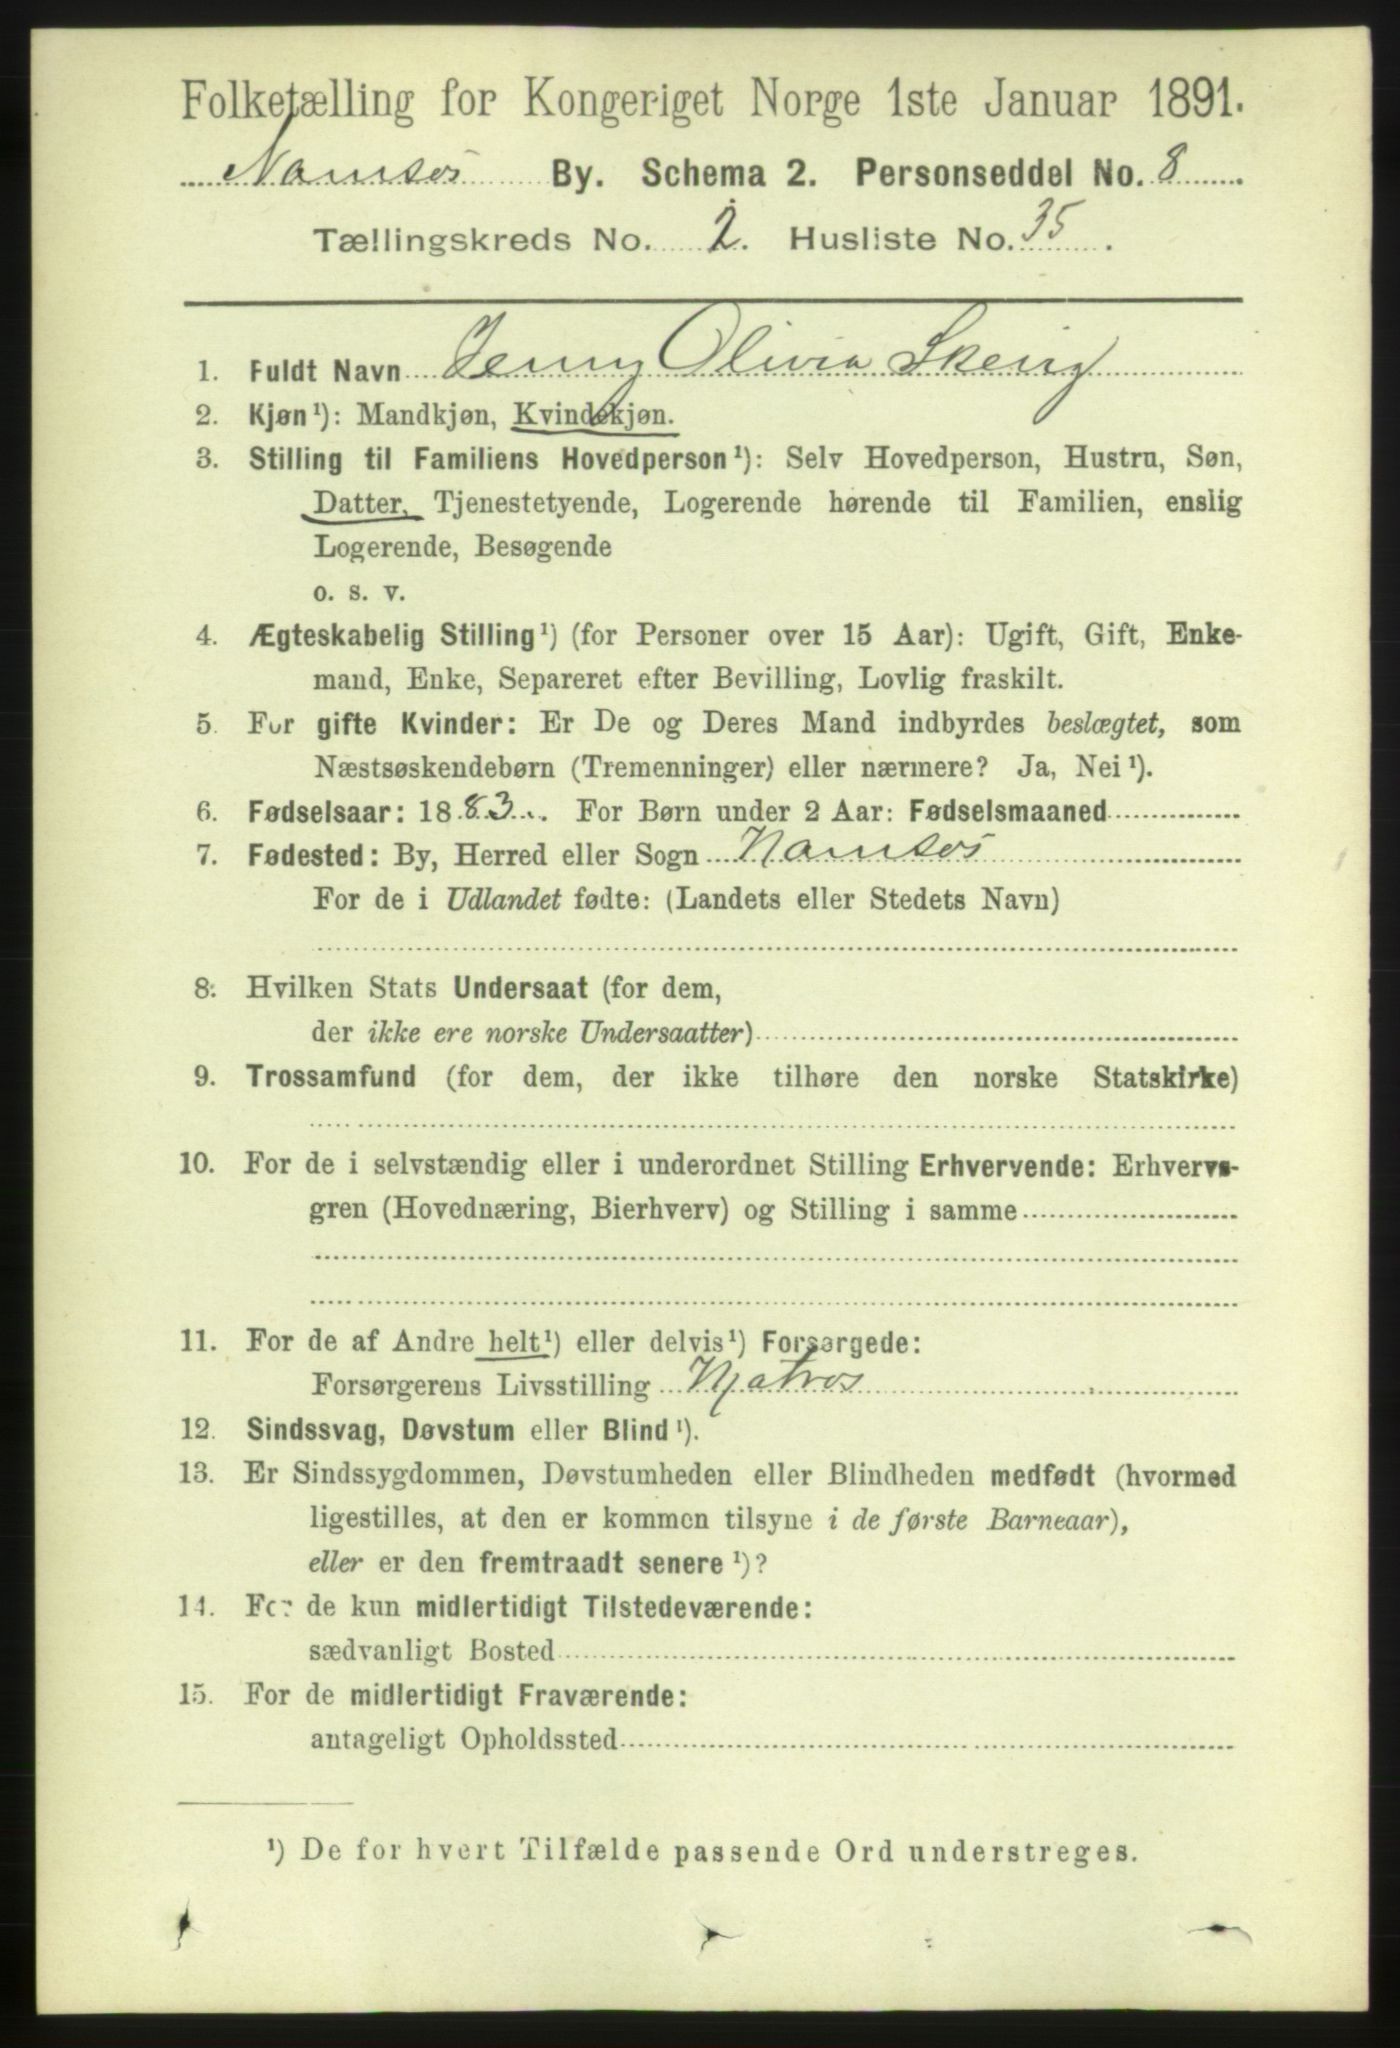 Folketælling for Kongeriget Norge 1ste Januar 1891.
Namsos By. Schema 2. Personseddel No. 8
Tællingskreds No. 2. Husliste No. 35.
1. Fuldt Navn Jenny Olivia
2. Kjøn¹): Mandkjøn, Kvindekjøn.
3. Stilling til Familiens Hovedperson¹): Selv Hovedperson, Hustru, Søn,
Datter, Tjenestetyende, Logerende hørende til Familien, enslig
Logerende, Besøgende
o. s. v.
4. Ægteskabelig Stilling¹) (for Personer over 15 Aar): Ugift, Gift, Enke-
mand, Enke, Separeret efter Bevilling, Lovlig fraskilt.
5. For gifte Kvinder: Er De og Deres Mand indbyrdes beslægtet, som
Næstsøskendebørn (Tremenninger) eller nærmere? Ja, Nei¹).
6. Fødselsaar: 1883. For Børn under 2 Aar: Fødselsmaaned
7. Fødested: By, Herred eller Sogn Namsos
For de i Udlandet fødte: (Landets eller Stedets Navn)
8. Hvilken Stats Undersaat (for dem,
der ikke ere norske Undersaatter)
9. Trossamfund (for dem, der ikke tilhøre den norske Statskirke)
10. For de i selvstændig eller i underordnet Stilling Erhvervende: Erhvervs-
gren (Hovednæring, Bierhverv) og Stilling i samme
11. For de af Andre helt¹) eller delvis¹) Forsørgede:
Forsørgerens Livsstilling Matros
12. Sindssvag, Døvstum eller Blind¹).
13. Er Sindssygdommen, Døvstumheden eller Blindheden medfødt (hvormed
ligestilles, at den er kommen tilsyne i de første Barneaar),
eller er den fremtraadt senere¹)?
14. For de kun midlertidigt Tilstedeværende:
sædvanligt Bosted
15. For de midlertidigt Fraværende:
antageligt Opholdssted
¹) De for hvert Tilfælde passende Ord understreges.